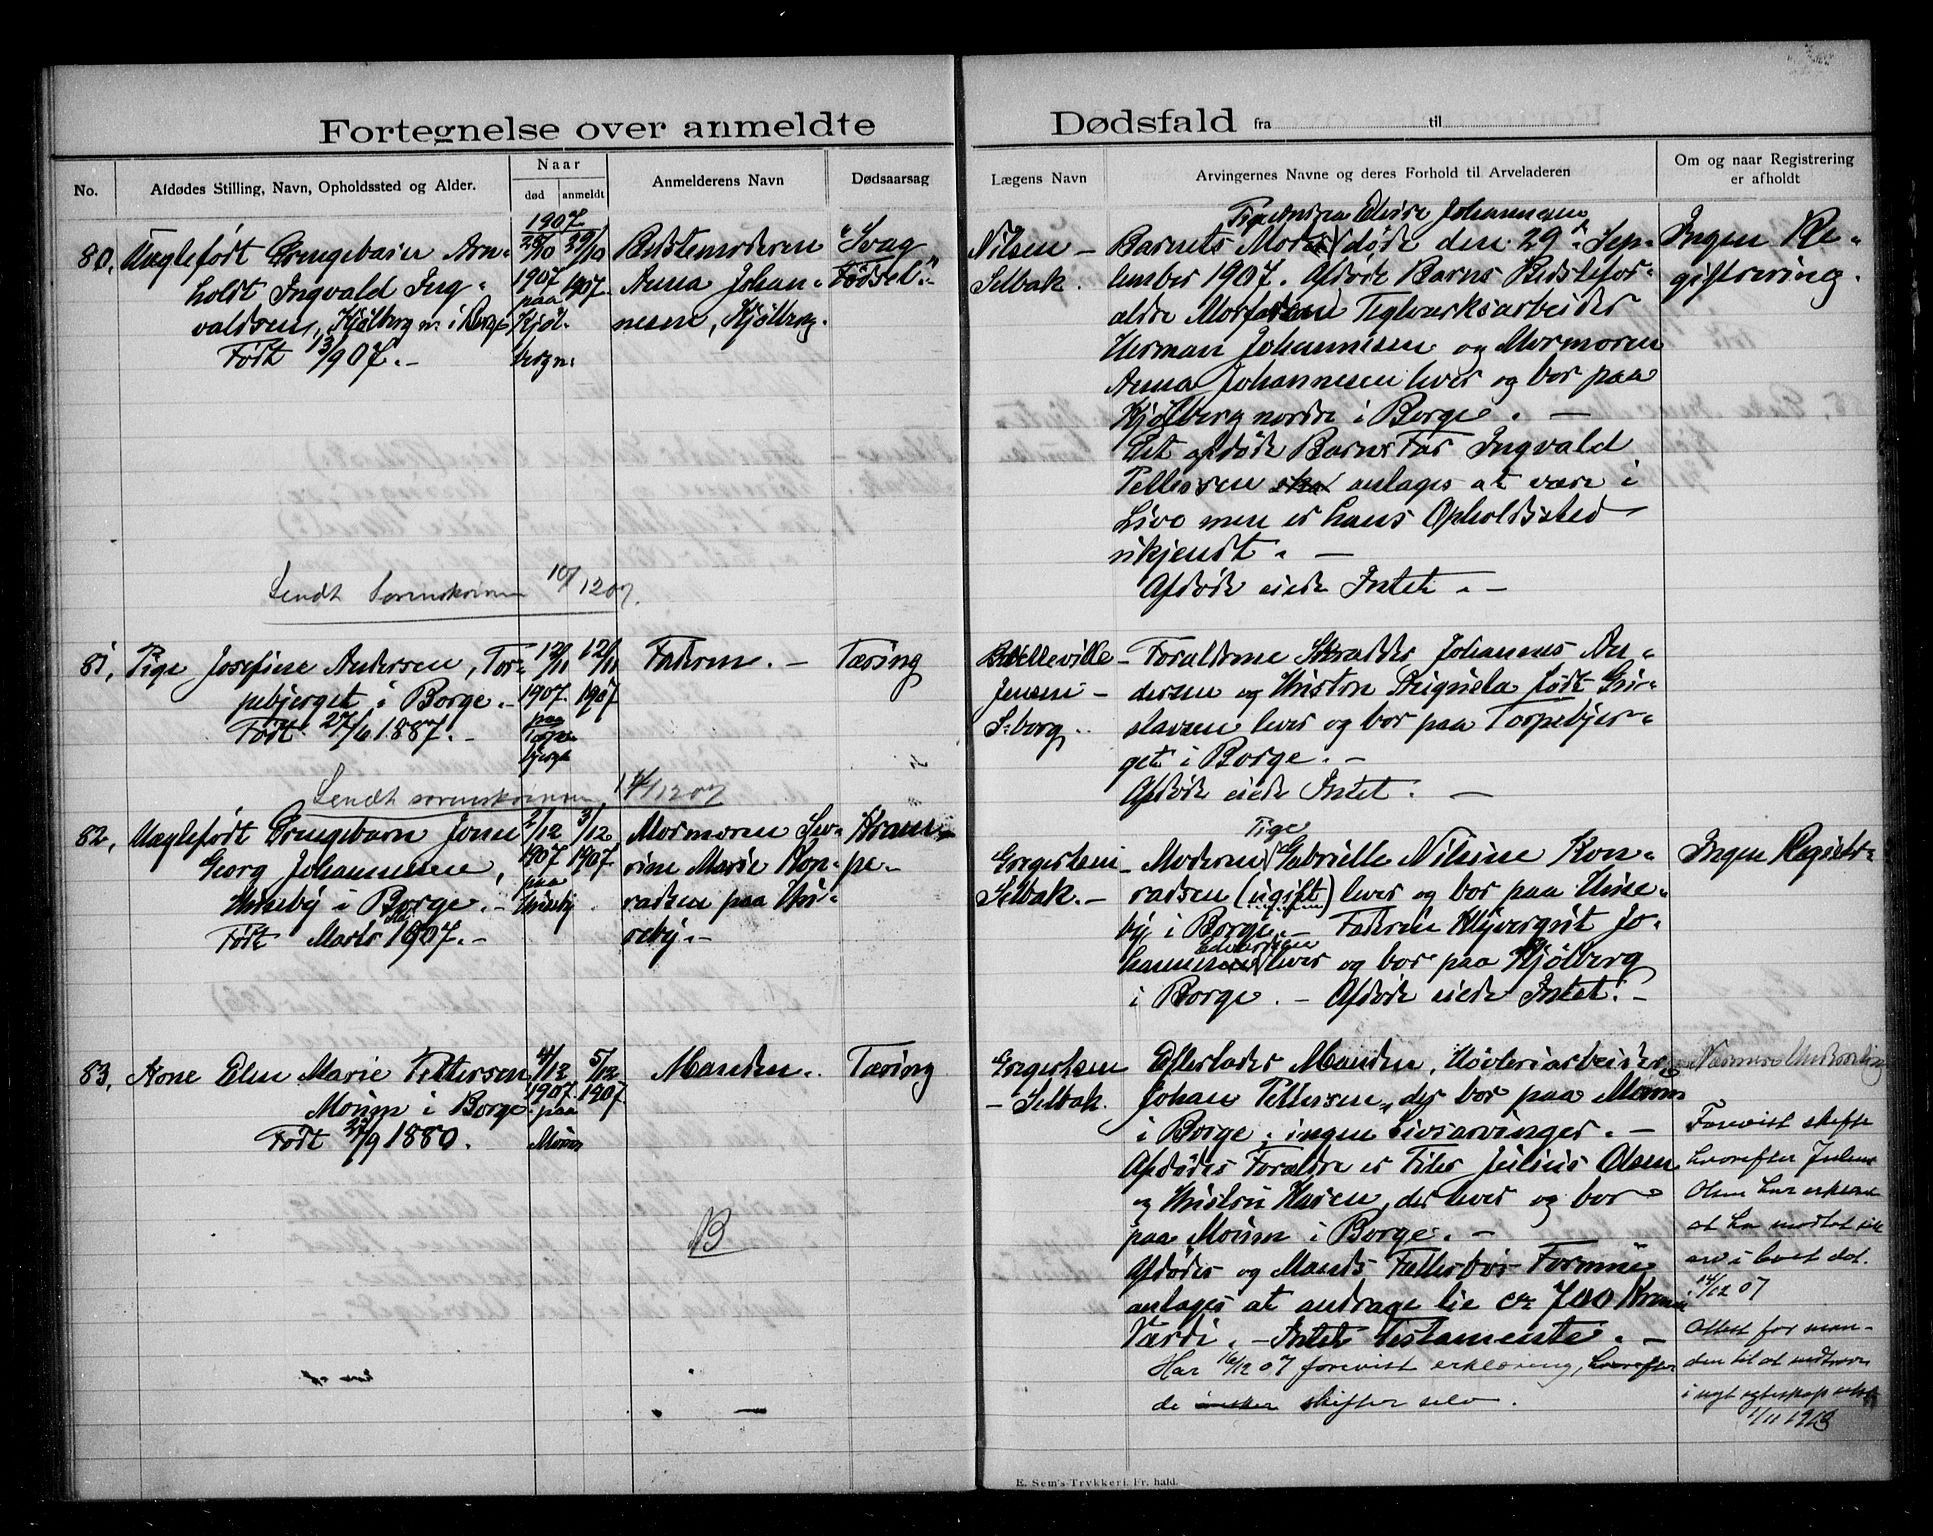 Fortegnelse over anmeldte Dødsfald fra til
No.
Afdødes Stilling, Navn, Opholdssted og Alder.
Naar
død anmeldt
Anmelderens Navn
Dødsaarsag
Lægens Navn
Arvingernes Navne og deres Forhold til Arveladeren
Om og naar Registrering
er afholdt
80. Uægtefødt Drengebarn Arn-
holdt Ingvald Ing-
valdsen, Kjølberg n. i Borge
Født 13/9 07.-
1907
28/10 29/10
1907 1907.
paa
Kjøl-
bergn.
Bedstemoderen
Anna Johan-
nesen, Kjølberg.
"Svag
Fødsel".
Nilsen
Selbak.
Elvire Johannesen
Barnets Moder døde den 29de Sep-
tember 1907. Afdøde Barns Bedstefor-
ældre Morfaderen Teglværksarbeider
Herman Johannesen og Mormoren
Anna Johannesen lever og bor paa
Kjølberg nordre i Borge. -
Det afdøde Barns Far Ingvald
Pettersen skal antages at være i
Live men er hans Opholdssted
ukjendt. -
Afdøde eiede Intet. -
Ingen Re-
gistrering.
Sendt Sorenskriveren 10/12 07.
81, Pige Josefine Andersen, Tor-
pebjerget i Borge.-
Født 27/6 1887.-
12/11 12/11
1907. 1907
paa
Torpe-
bjerget
Faderen. -
Tæring
Belleville
Jensen -
S-borg.
- Forældrene Skrædder Johannes An-
dersen og Kristin født Gu-
slavsen lever og bor paa Torpebjer-
get i Borge. -
Afdøde eiede Intet. -
Sendt sorenskriveren 14/12 07
82, Uægtefødt Drengebarn Jonn
Georg Johannesen,
Hunneby i Borge.-
Født Marts 1907.-
2/12 3/12
1907 1907
paa
Mormoren Se-
rine Marie Kon-
radsen paa
Kram-
pe-
Gregersen
Selbak.-
Pige
- Moderen Gabrielle Nilsine Kon-
radsen (ugift) lever og bor paa
by i Borge. - Faderen Jo-
hannesen Edvardsen lever og bor paa Kjølberg
i Borge. - Afdøde eiede Intet. -
Ingen Registr-
83, Kone Elen Marie Pettersen
Moum i Borge
Født 27/9 1880.
4/12 5/12
1907. 1907
paa
Moum
Manden.
Tæring
Gregersen
- Selbak.
Efterlader Manden, Høvleriarbeider
Johan Pettersen, der bor paa Moum
i Borge, ingen Livsarvinger. -
Afdødes Forældre er Fiber Julius Olsen
og Hustru Karen, der lever og bor
paa Moum i Borge. -
Afdødes og Mands Fællesbos Formue
antages at andrage til ca 700 Kroner
Værdi. - Intet Testamente. -
Har 16/12 07 forevist erklæring, hvorefter
de ønsker skifter selv.
Nærmere Underretning
Forevist skifte
hvorefter Julius
Olsen har erklæret
at ha modtat sin
arv i boet dat.
14/12 07
Attest for man-
den til at indtræde
i nyt egteskap utst
1/11 1913
B
E. Sem's Trykkeri. Fr. hald.